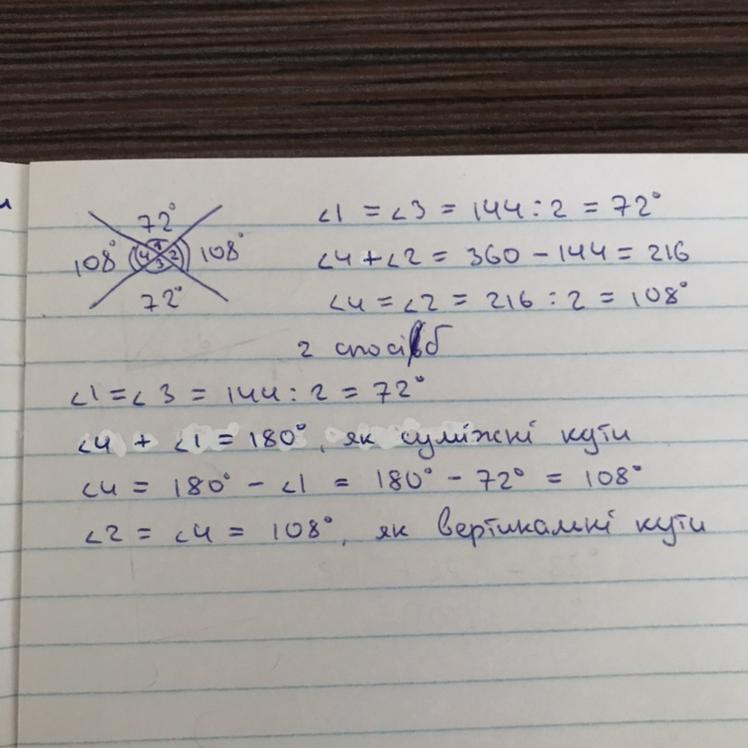 72°
108° 4 1 2 3 108°
72°
∠1 = ∠3 = 144 : 2 = 72°
∠4 + ∠2 = 360 - 144 = 216
∠4 = ∠2 = 216 : 2 = 108°
2 спосіб
∠1 = ∠3 = 144 : 2 = 72°
∠4 + ∠1 = 180°, як суміжні кути
∠4 = 180° - ∠1 = 180° - 72° = 108°
∠2 = ∠4 = 108°, як вертикальні кути